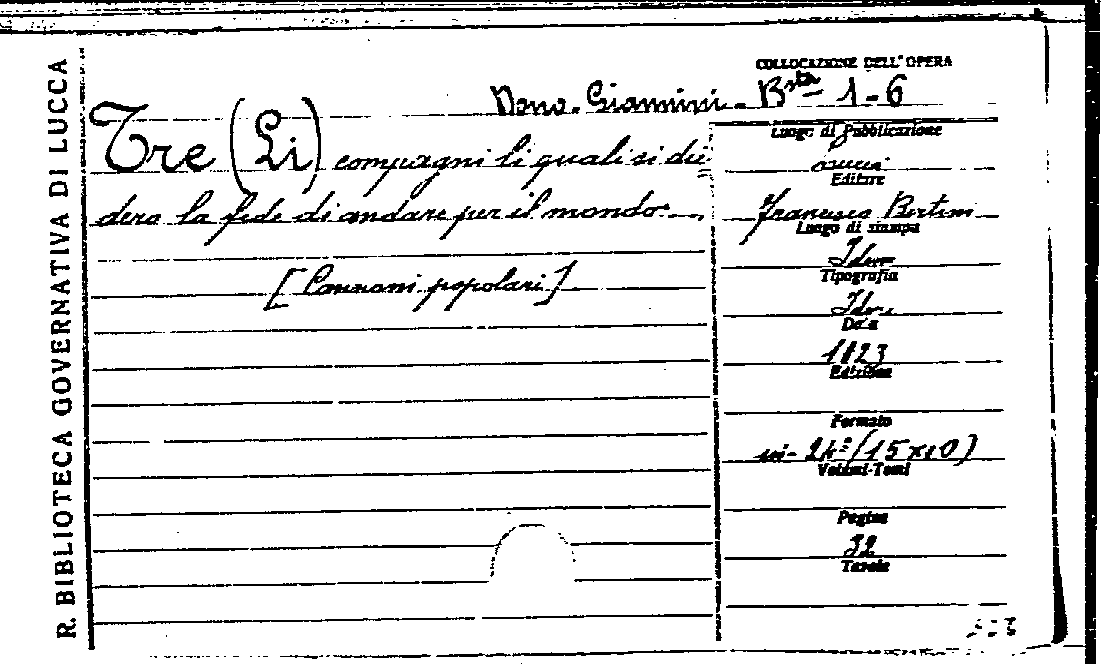 R. BIBLIOTECA GOVERNATIVA DI LUCCA
COLLOCAZIONE DELL'OPERA
Dono. Giannini - Bsta 1-6
Tre (Li) compagni li quali si die=
dero la fede di andare per il mondo.
[Canzoni popolari]
Luogo di Pubblicazione
Editore
Francesco Bertini
Luogo di stampa
Idem
Tipografia
Idem
Data
1823
Edizione
Formato
in-24º (15x10)
Volumi-Tomi
Pagine
32
Tavole